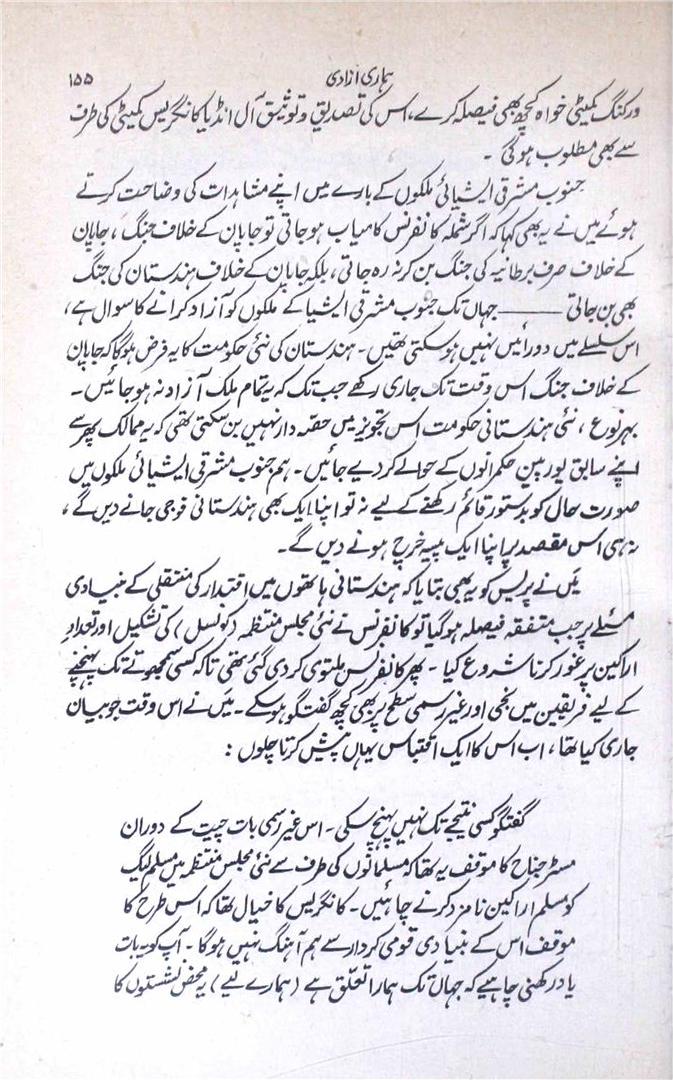 ہماری آزادی ۱۵۵
ورکنگ کمیٹی خواہ کچھ بھی فیصلہ کرے، اس کی تصدیق و توثیق آل انڈیا کانگریس کمیٹی کی طرف
سے بھی مطلوب ہوگی ۔
جنوب مشرقی ایشیائی ملکوں کے بارے میں اپنے مشاہدات کی وضاحت کرتے
ہوئے میں نے یہ بھی کہا کہ اگر شملہ کانفرنس کامیاب ہوجاتی تو جاپان کے خلاف جنگ ، جاپان
کے خلاف صرف برطانیہ کی جنگ بن کر نہ رہ جاتی ، بلکہ جاپان کے خلاف ہندستان کی جنگ
بھی بن جاتی ــــــــــ جہاں تک جنوب مشرقی ایشیا کے ملکوں کو آزاد کرانے کا سوال ہے،
اس سلسلے میں دو رائیں نہیں ہوسکتی تھیں۔ ہندستان کی نئی حکومت کا یہ فرض ہوگا کہ جاپان
کے خلاف جنگ اس وقت تک جاری رکھے جب تک کہ یہ تمام ملک آزاد نہ ہوجائیں۔
بہر نوع ، نئی ہندستانی حکومت اس تجویز میں حصّہ دار نہیں بن سکتی تھی کہ یہ ممالک پھر سے
اپنے سابق یورپین حکمرانوں کے حوالے کردیے جائیں۔ ہم جنوب مشرقی ایشیائی ملکوں میں
صورت حال کو بدستور قائم رکھنے کے لیے نہ تو اپنا ایک بھی ہندستانی فوجی جانے دیں گے ،
نہ ہی اس مقصد پر اپنا ایک پیسہ خرچ ہونے دیں گے۔
میَں نے پریس کو یہ بھی بتایا کہ ہندستانی ہاتھوں میں اقتدار کی منتقلی کے بنیادی
مسئلے پر جب متفقہ فیصلہ ہوگیا تو کانفرنس نے نئی مجلس منتظمہ (کونسل) کی تشکیل اور تعدادِ
اراکین پر غور کرنا شروع کیا ۔ پھر کانفرنس ملتوی کردی گئی تھی تاکہ کسی سمجھوتے تک پہنچنے
کے لیے فریقین میں نجی اور غیر رسمی سطح پر بھی کچھ گفتگو ہوسکے۔ میَں نے اس وقت جو بیان
جاری کیا تھا ، اب اس کا ایک اقتباس یہاں پیش کرتا چلوں :
گفتگو کسی نتیجے تک نہیں پہنچ سکی۔ اس غیر رسمی بات چیت کے دوران
مسٹر جناح کا موقف یہ تھا کہ مسلمانوں کی طرف سے نئی مجلس منتظمہ میں مسلم لیگ
کو مسلم اراکین نامزد کرنے چاہئیں۔ کانگریس کا خیال تھا کہ اس طرح کا
موقف اس کے بنیادی قومی کردار سے ہم آہنگ نہیں ہوگا ۔ آپ کو یہ بات
یاد رکھنی چاہیے کہ جہاں تک ہمارا تعلّق ہے (ہمارے لیے) یہ محض نشستوں کا